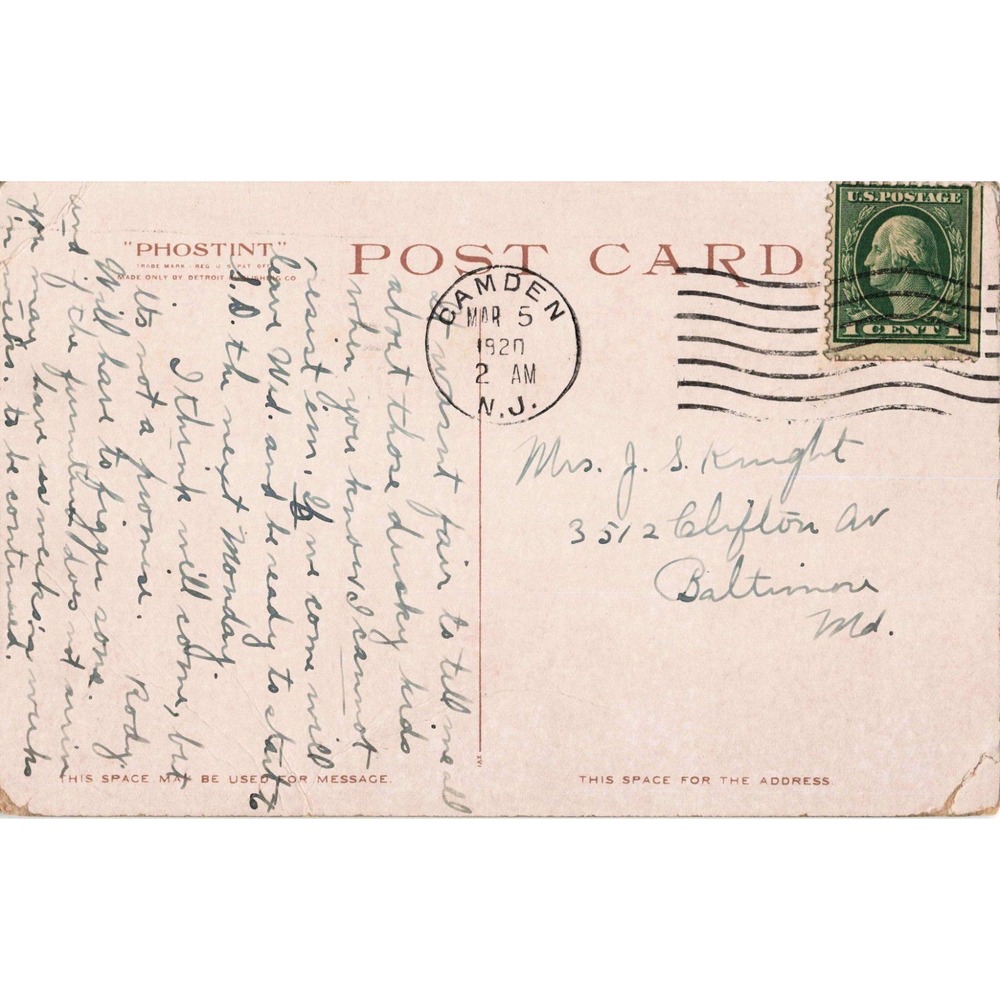 "PHOSTINT"
TRADE MARK - REG. U.S. PAT. OFF.
MADE ONLY BY DETROIT PUBLISHING CO
POST CARD
U.S. POSTAGE
1 CENT 1
CAMDEN
MAR 5
1920
2 AM
N.J.
wasnt fair to tell me all
about those dusky kids
when you know I cannot
resist 'em. If we come will
leave Wed. and be ready to start
S.D. th next Monday.
I think will come, but
its not a promise. Rody
Will have to figger some.
and if the furniture does not arrive
you may have us weeks in weeks
to be continued.
Mrs. J. S. Knight
3512 Clifton Av
Baltimore
Md.
THIS SPACE MAY BE USED FOR MESSAGE.
THIS SPACE FOR THE ADDRESS.